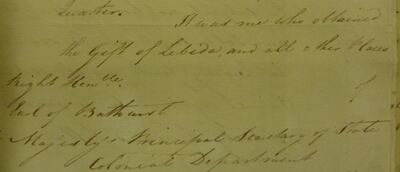 quarter. It was me who obtained
the Gift of Lebida, and all other Places
Right Honble.
of
Earl of Bathurst
Majesty's Principal Secretary of State
Colonial Department